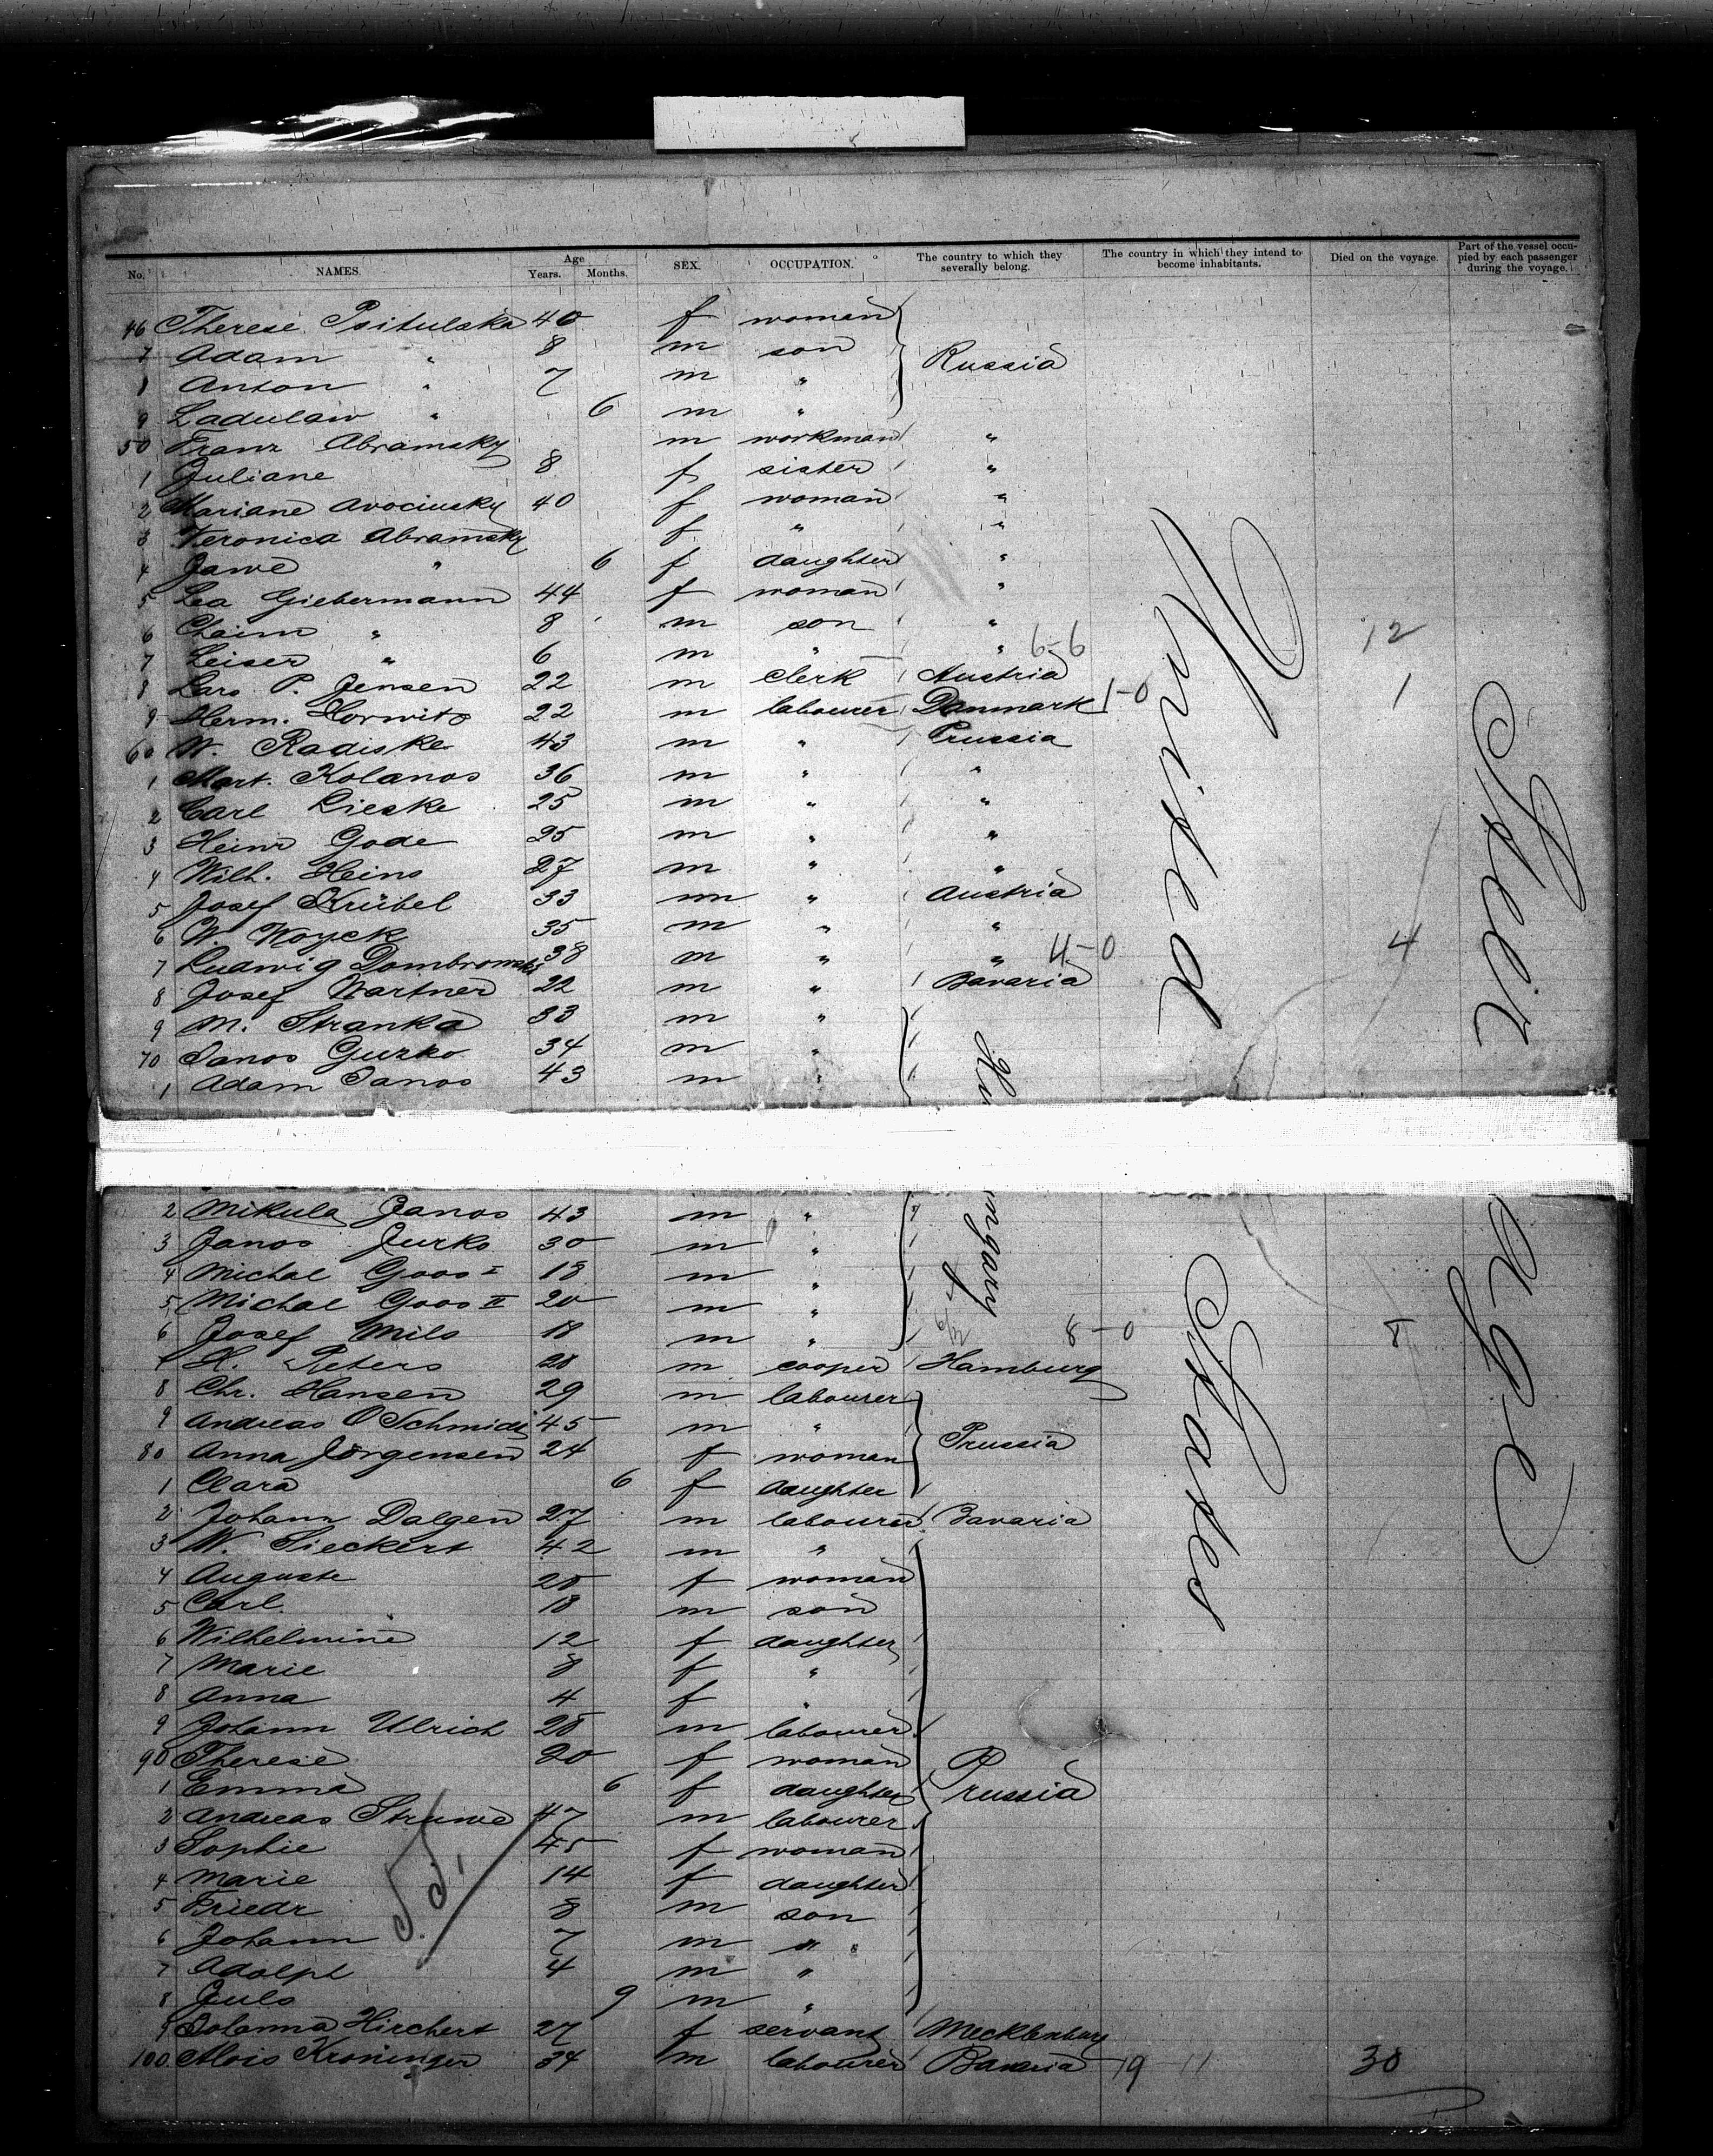 No. NAMES. Age Years. Months. SEX. OCCUPATION. The country to which they severally belong. The country in which they intend to become inhabitants. Died on the voyage. Part of the vessel occupied by each passenger during the voyage.
46 Therese Psitulska 40 f woman
7 Adam " 8 m son Russia
8 Anton " 7 m "
9 Ladulaw " 6 m "
50 Franz Abramsky m workman "
1 Juliane 8 f sister "
2 Mariane Avociusky 40 f woman "
3 Veronica Abramsky f " "
4 Jawe " 6 f daughter "
5 Lea Giebermann 44 f woman "
6 Chaim " 8 m son " 12
7 Leiser " 6 m " " 6-6
8 Lars P. Jensen 22 m clerk Austria 1
9 Herm. Horwitz 22 m labourer Danmark 1-0
60 W. Radiske 43 m " Prussia
1 Mart. Kolanos 36 m " "
2 Carl Lieske 25 m " "
3 Heinr Gode 25 m " "
4 Wilh. Heins 27 m " "
5 Josef Krübel 33 m " Austria
6 W. Woyck 35 m " "
7 Ludwig Dombrowski 38 m " " 4-0 4
8 Josef Wartner 22 m " Bavaria
9 M. Stranka 33 m "
70 Janos Gurko 34 m "
1 Adam Janos 43 m "
Hungary
United States
Steerage
2 Mikula Janos 43 m "
3 Janos Jurko 30 m "
4 Michal Goos I 18 m "
5 Michal Goos II 20 m "
6 Josef Mils 18 m " 8-0 8
7 H. Peters 28 m cooper Hamburg
8 Chr. Hansen 29 m labourer
9 Andreas O Schmidt 45 m "
80 Anna Jörgensen 24 f woman Prussia
1 Clara 6 f daughter
2 Johann Dalgen 27 m labourer Bavaria
3 W. Sieckert 42 m "
4 Auguste f woman
5 Carl. 18 m son
6 Wilhelmine 12 f daughter
7 Marie 8 f "
8 Anna 4 f "
9 Johann Ulrich 28 m labourer
90 Therese 20 f woman
1 Emma 6 f daughter Prussia
2 Andreas Struwe 47 m labourer
3 Sophie 45 f woman
4 Marie 14 f daughter
5 Friedr 8 m son
6 Johann 7 m "
7 Adolph 4 m "
8 Juls 9 m "
9 Johanna Hirchert 27 f servant Mecklenburg
100 Alois Kroninger 34 m labourer Bavaria 19 11 30